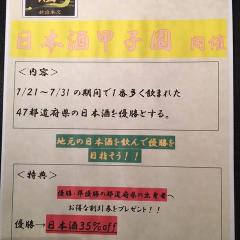 日本酒甲子園 開催
＜内容＞
7/21～7/31の期間で1番多く飲まれた
47都道府県の日本酒を優勝とする。
地元の日本酒を飲んで優勝を
目指そう！！
＜特典＞
優勝・準優勝の都道府県の出身者へ
お得な割引券をプレゼント！！
優勝→日本酒35%off